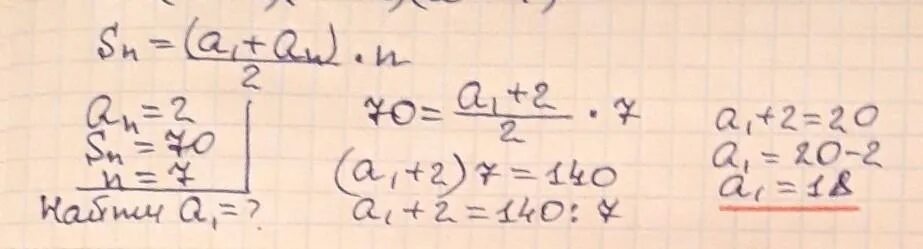 Sn = (a₁ + an)/2 · n
an = 2
Sn = 70
n = 7
Найти a₁ = ?
70 = (a₁ + 2)/2 · 7
(a₁ + 2) 7 = 140
a₁ + 2 = 140 : 7
a₁ + 2 = 20
a₁ = 20 - 2
a₁ = 18